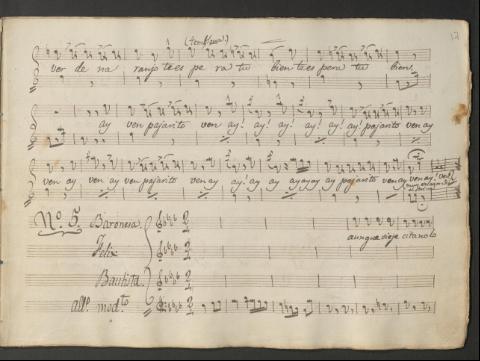 17
(temblivas!)
ver de na ranjo tees pe ra tu bien tees pera tu bien,
ay ven pajarito ven ay! ay! ay! ay! ay! pajarito ven ay
ven ay ven ay ven pajarito ven ay! ay! ay ayayay ay pajarito ven ay ven ay!
Nº. 5. Baronesa.
aunque viejo
Felix
Bautista.
all.º mod.to